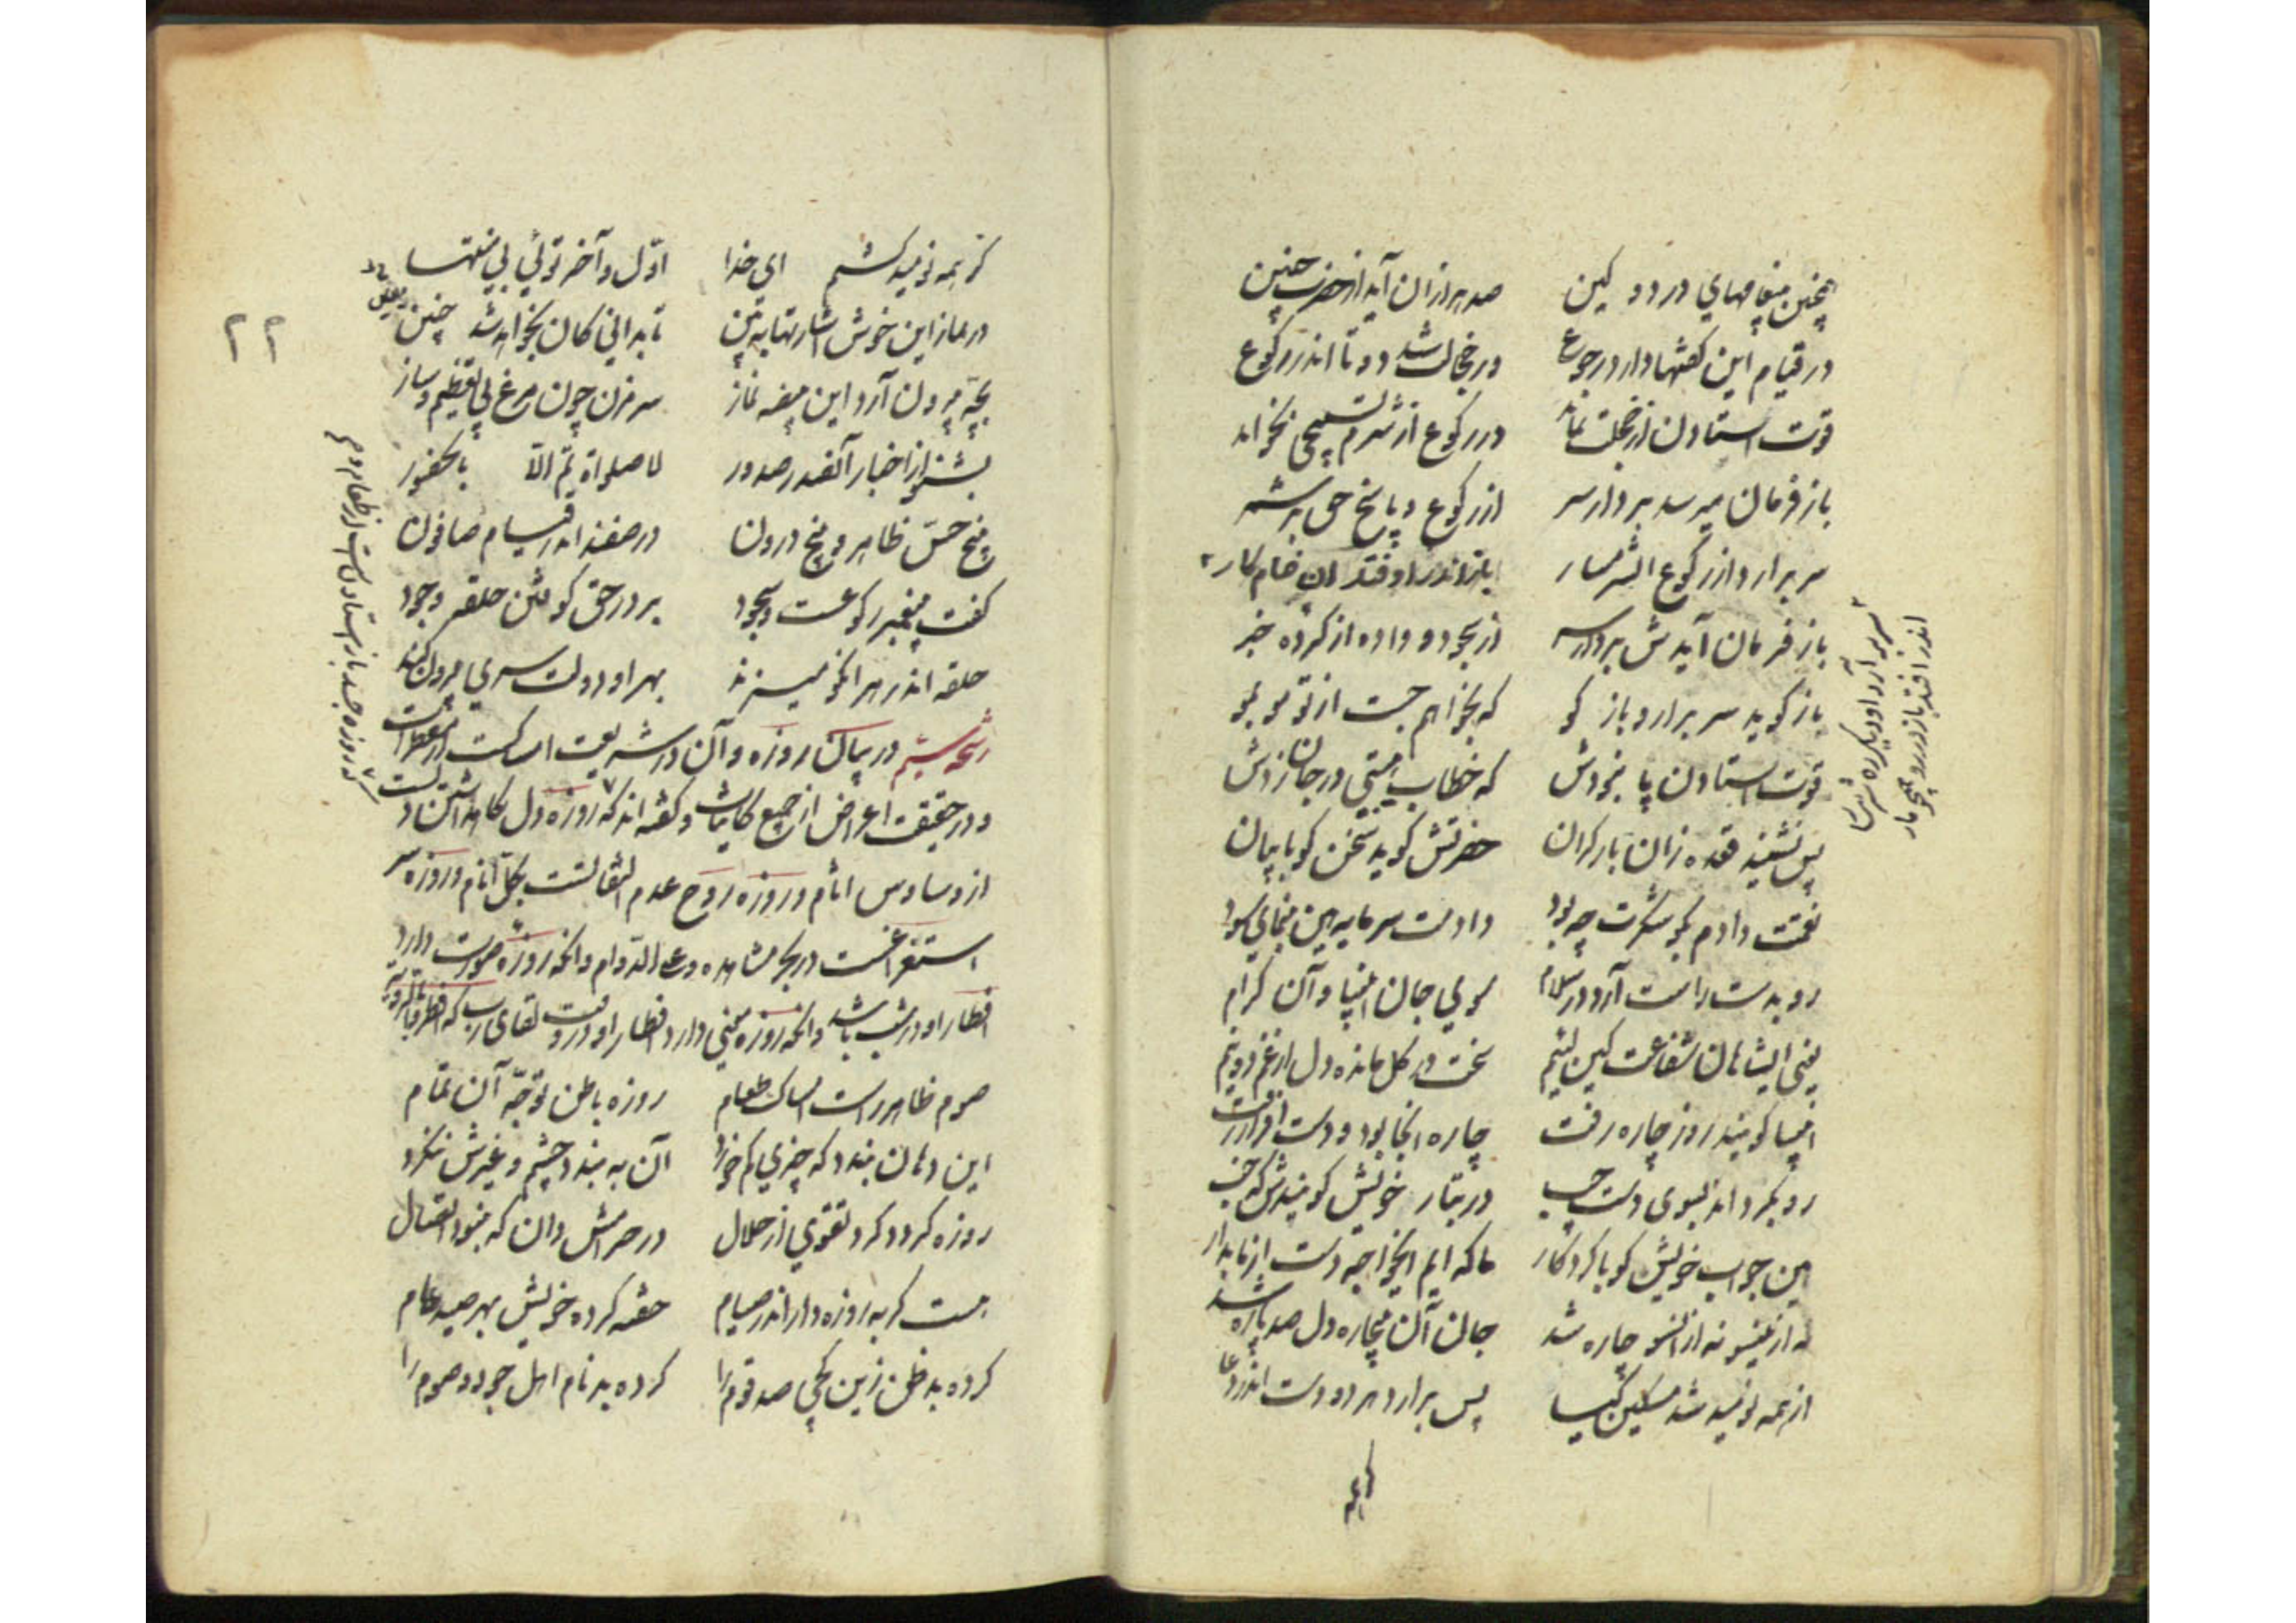 همچنین پیغامهای درد و کین صد هزاران آید از حضرت چنین
در قیام این گفتها دارد رجوع وز خجالت شد دو تا اندر رکوع
قوت استادن از خجلت نماند در رکوع از شرم تسبیحی بخواند
باز فرمان میرسد بردار سر از رکوع و پاسخ حق بر شمر
سر برارد از رکوع آن شرمسار باز اندر رو فتد آن خام کار
باز فرمان آیدش بردار سر از سجود و واده از کرده خبر
سر بر آرد او دگر ره شرمسار
اندر افتد باز در رو همچو مار
باز گوید سر برار و باز گو که بخواهم جست از تو مو بمو
قوت استادن پا نبودش که خطاب هیبتی در جان زدش
پس نشیند قعده زان بار گران حضرتش گوید سخن گو با بیان
نعمت دادم بگو شکرت چه بود دادمت سرمایه هین بنمای سود
رو بدست راست آرد در سلام سوی جان انبیا و آن کرام
یعنی ای شاهان شفاعت کین لئیم سخت در گل مانده دل از غم دو نیم
انبیا گویند روز چاره رفت چاره آنجا بود و دست افزار زفت
رو بگرداند بسوی دست چپ در تبار خویش گویندش که خپ
هین جواب خویش گو با کردگار ما که ایم ایخواجه دست از ما بدار
نه ازینسو نه از آنسو چاره شد جان آن بیچاره دل صد پاره شد
از همه نومید شد مسکین کیا پس برارد هر دو دست اندر دعا
کز همه
۲۲
کز همه نومید گشتم ای خدا اوّل و آخر توئی بی منتها
در نماز این خوش اشارتها ببین تا بدانی کان بخواهد شد چنین یقین
بچّه بیرون آر از این بیضه نماز سر مزن چون مرغ بی تعظیم و ساز
بشنو از اخبار آنصدر صدور لا صلواة تمّ الّا بالحضور
پنج حسّ ظاهر و پنج درون در صفند اندر قیام صافون
گفت پیغمبر رکوعست و سجود بر در حق کوفتن حلقه وجود
حلقه اندر هر انکو میزند بهر او دولت سری بیرون کند
رشحه بیستم در بیان روزه و آن در شریعت امساکست از مفطرات
و در حقیقت اعراض از جمیع کاینات و گفته اند که روزه دل نگاهداشتن اوست
که روزه جسد باز استادن است از طعام و
از وساوس اثام و روزه روح عدم التفاتست بکل انام و روزه سر
استغراقست در بحر مشاهده و علی الدوام و انکه روزه صورت دارد
افطار او در شب باشد و انکه روزه معنی دارد افطار او در وقت لقای رب که
صوم ظاهر راست امساک طعام روزه باطن توجّه آن تمام
این دهان بندد که چیزی کم خورد آن به بندد چشم و غیرش ننگرد
روزه گردد گرد تقوی از حلال در حرامش دان که نبود اتصال
هست گربه روزه دار اندر صیام خفته کرده خویش بهر صید عام
کرده بد ظن زین کجی صد قوم را کرده بد نام اهل جود و صوم را